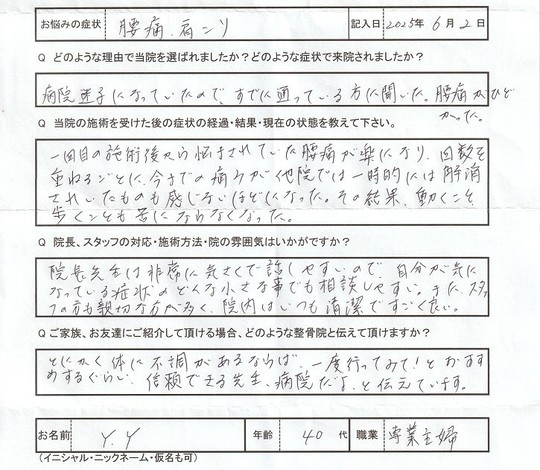 お悩みの症状 腰痛、肩こり 記入日 2025年 6月 2日
Q どのような理由で当院を選ばれましたか?どのような症状で来院されましたか?
病院迷子になっていたので、すでに通っている方に聞いた。腰痛がひど
かった。
Q 当院の施術を受けた後の症状の経過・結果・現在の状態を教えて下さい。
一回目の施術後から悩まされていた腰痛が楽になり、回数を
重ねるごとに、今までの痛みが他院では一時的には解消
されていたものも感じないほどになった。その結果、動くこと
歩くことも苦にならなくなった。
Q 院長、スタッフの対応・施術方法・院の雰囲気はいかがですか?
院長先生は非常に気さくで話しやすいので、自分が気に
なっている症状のどんな小さな事でも相談しやすい。また、スタッ
フの方も親切な方が多く、院内はいつも清潔ですごく良い。
Q ご家族、お友達にご紹介して頂ける場合、どのような整骨院と伝えて頂けますか?
とにかく体に不調があるならば、一度行ってみて!とおすす
めするぐらい、信頼できる先生、病院だよ、と伝えています。
お名前 Y.Y 年齢 40代 職業 専業主婦
(イニシャル・ニックネーム・仮名も可)